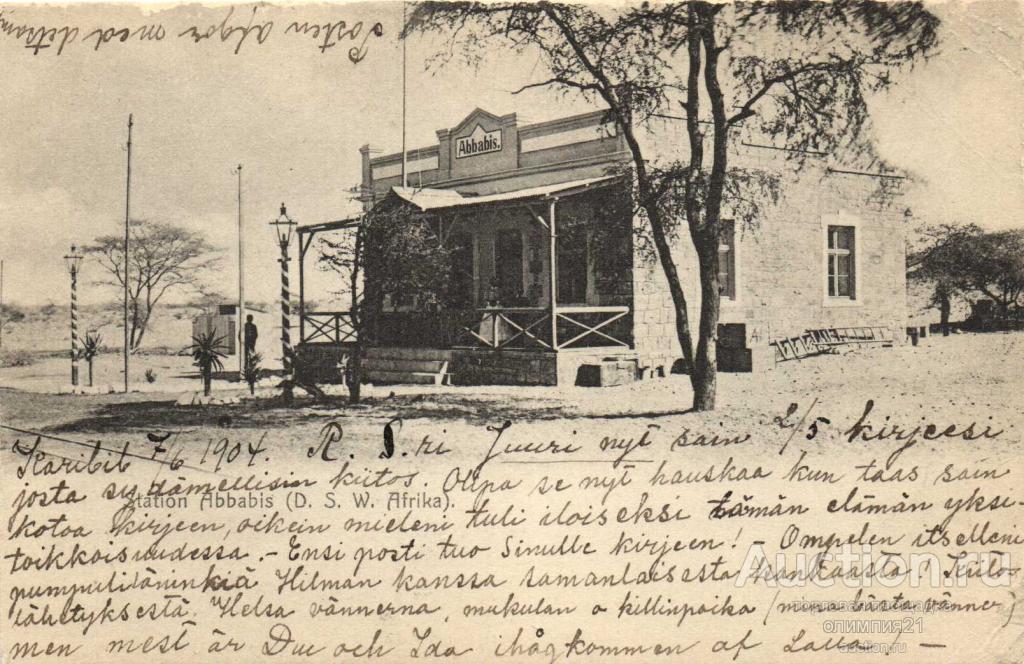 Posten afgår med detsam
Abbabis.
Karibib 7/6 1904. R. S.ri Juuri nyt sain 2/5 kirjeesi
josta sydämellisin kiitos. Olipa se nyt hauskaa kun taas sain
Station Abbabis (D. S. W. Afrika).
kotoa kirjeen, oikein mieleni tuli iloiseksi tämän elämän yksi-
toikkoisuudessa. - Ensi posti tuo Sinulle kirjeen! - Ompelen itselleni
pumpuliläninkiä Hilman kanssa samanlaisesta kankaasta! Kiitos
lähetyksestä. Helsa vännerna, mukulan o killinpoika / mina bästa vänner
men mest är Du och Ida ihågkommen af
Auction.ru
олимпия21
auction.ru